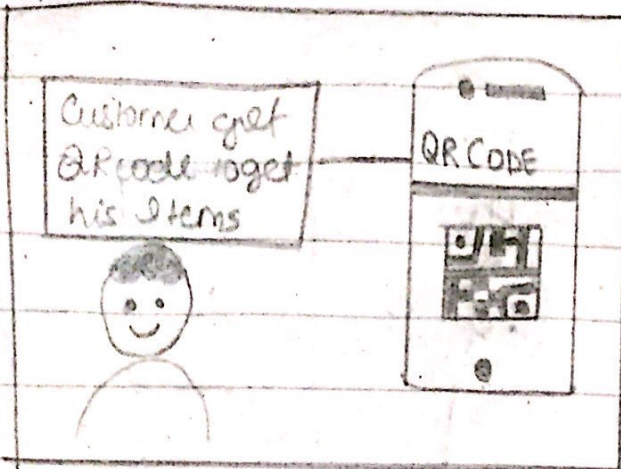 Customer get
QR code to get
his Items
QR CODE